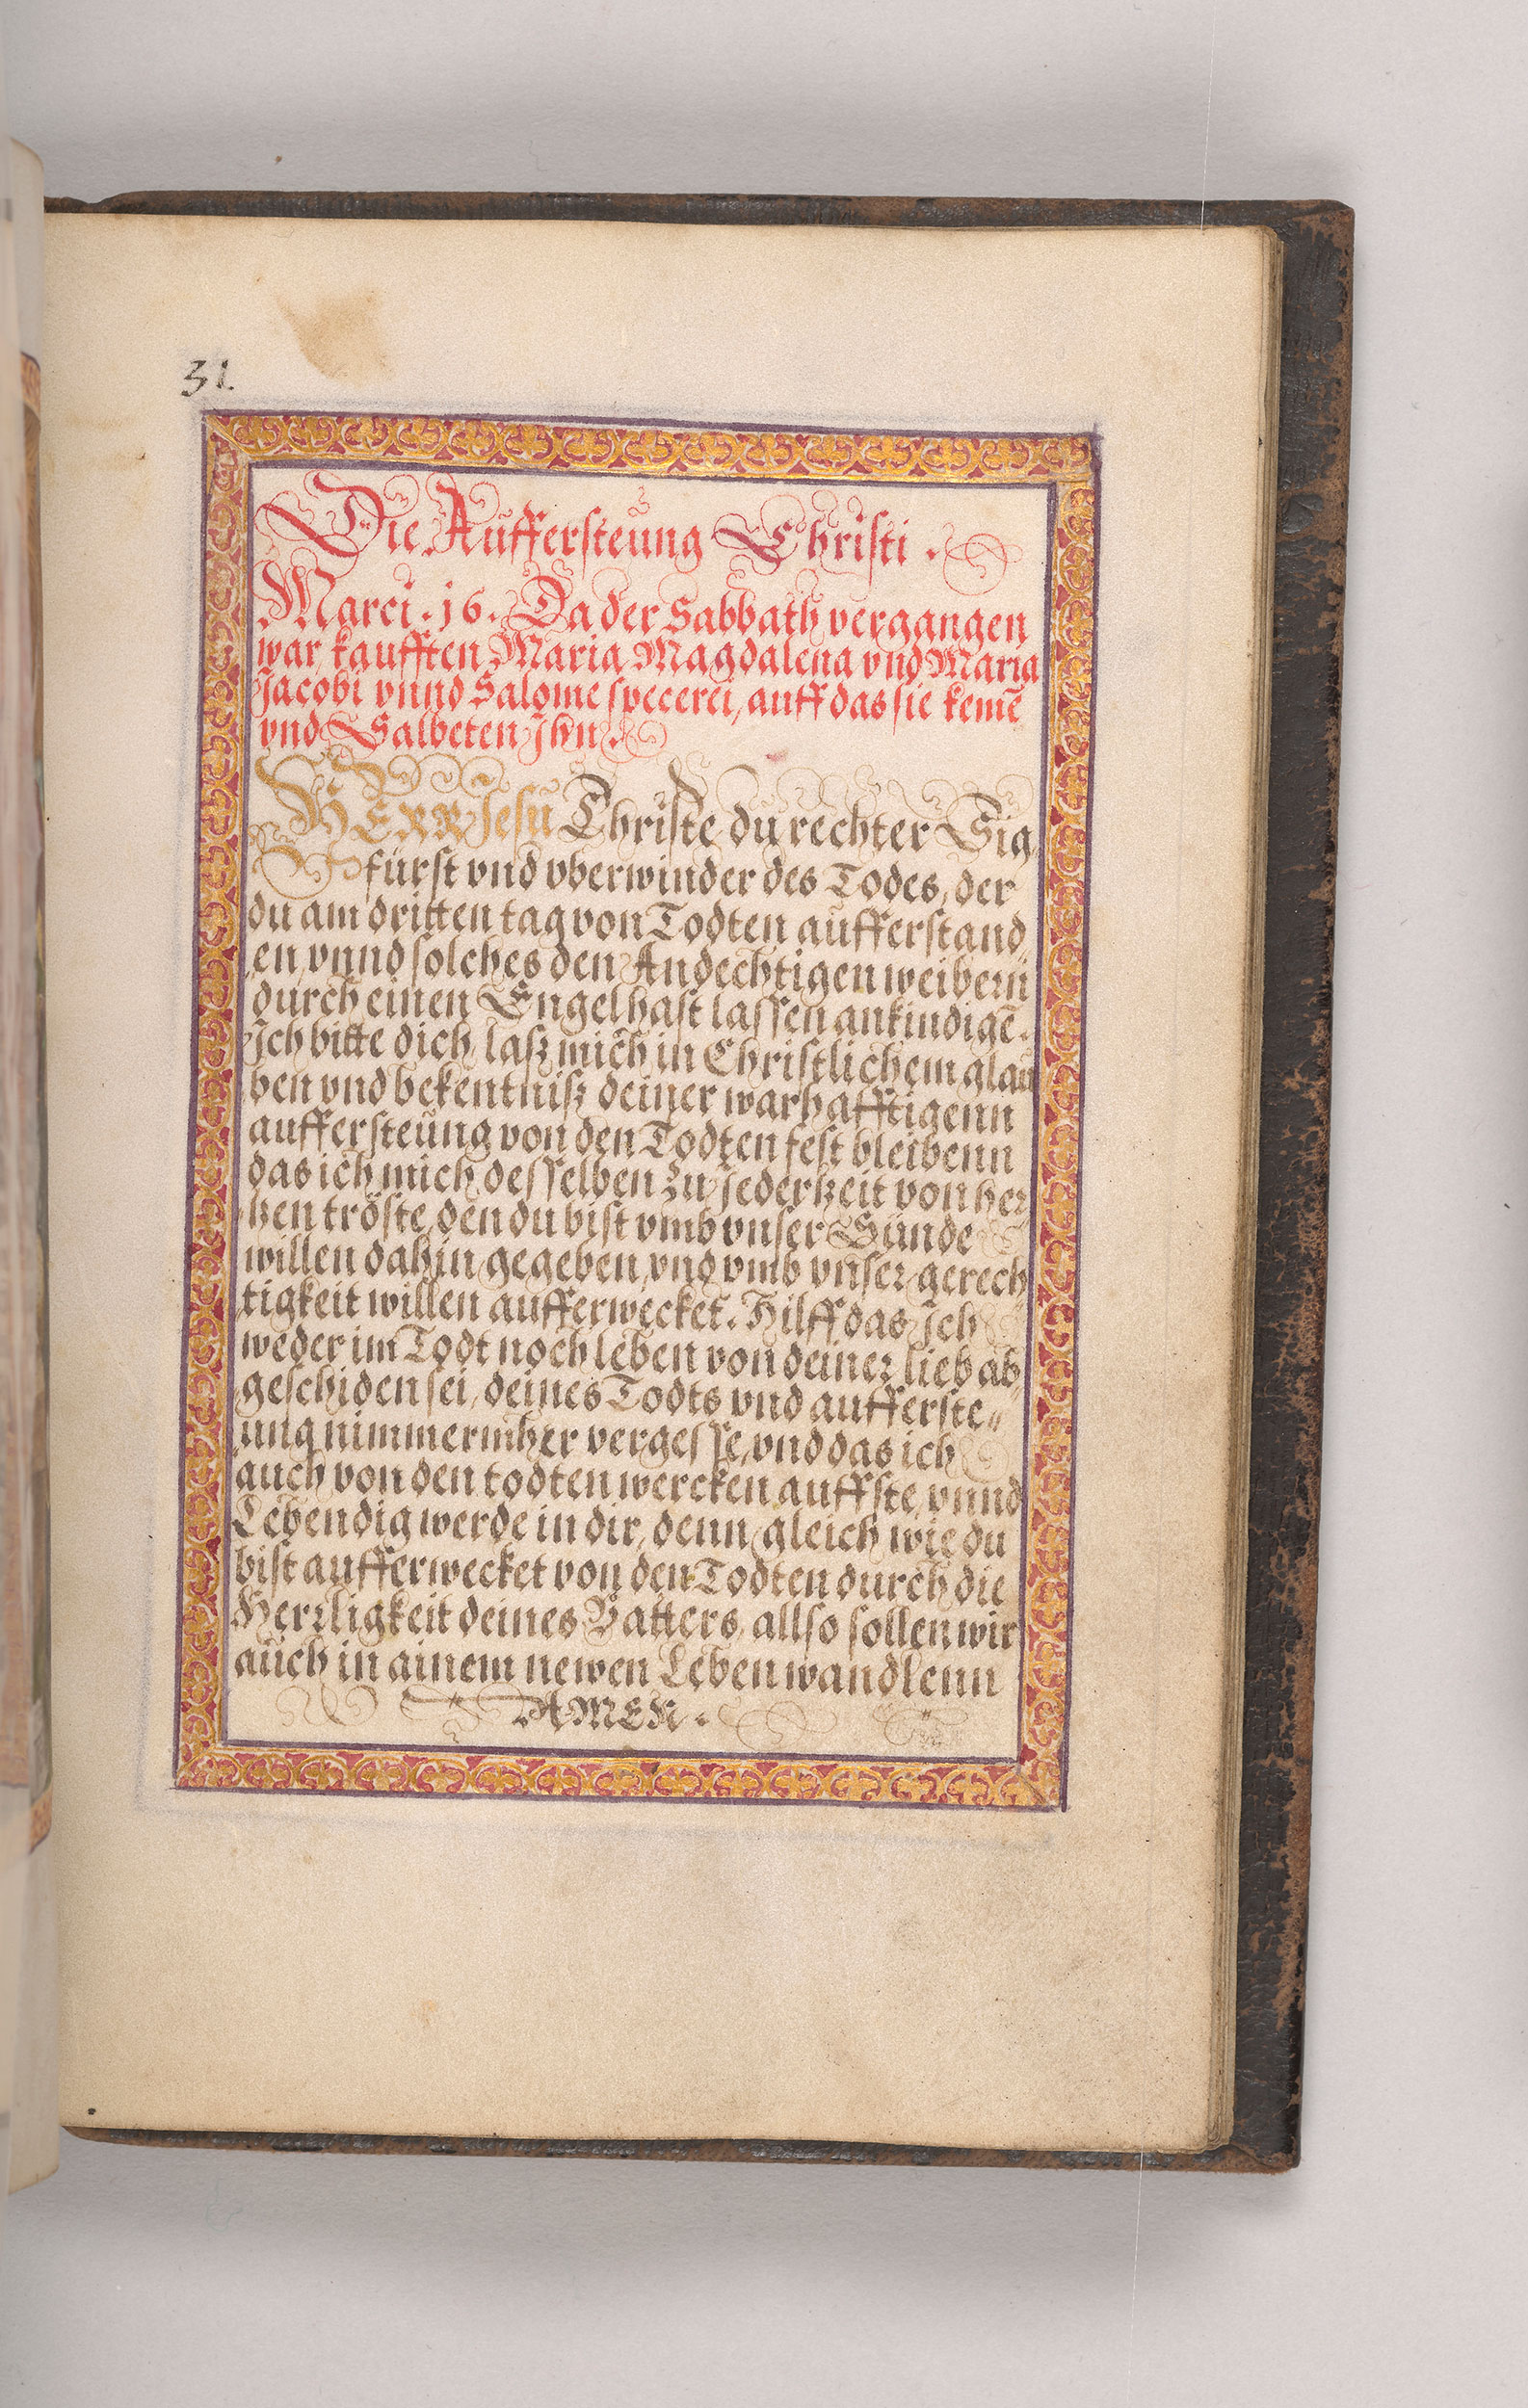 31.
Die Auffersteung Christi.
Marci. 16. Da der Sabbath vergangen
war, kaufften Maria Magdalena vnd Maria
Jacobi vnnd Salome specerei, auff das sie kemē
vnd Salbeten Ihn.
HERR Jesu Christe du rechter Sig,
fürst vnd vberwinder des Todes, der
du am dritten tag von Todten aufferstand,
en, vnnd solches den Andechtigen weibern
durch einen Engel hast lassen ankindigē.
Ich bitte dich, lasz mich in Christlichem glau
ben vnd bekentnisz deiner warhafftigenn
auffersteung von den Todten fest bleibenn
das ich mich desselben zu jederzeit von her,
tzen tröste, den du bist vmb vnser Sünde
willen dahin gegeben, vnd vmb vnser gerech
tigkeit willen aufferwecket. Hilff das Ich
weder im Todt noch leben von deiner lieb ab,
geschiden sei, deines Todts vnd aufferste,,
ung nimmermher vergesse, vnd das ich
auch von den todten wercken auffste, vnnd
Lebendig werde in dir, denn gleich wie du
bist aufferwecket von den Todten durch die
Herrligkeit deines Vatters, allso sollen wir
auch in ainem newen Leben wandlenn
AMEN.